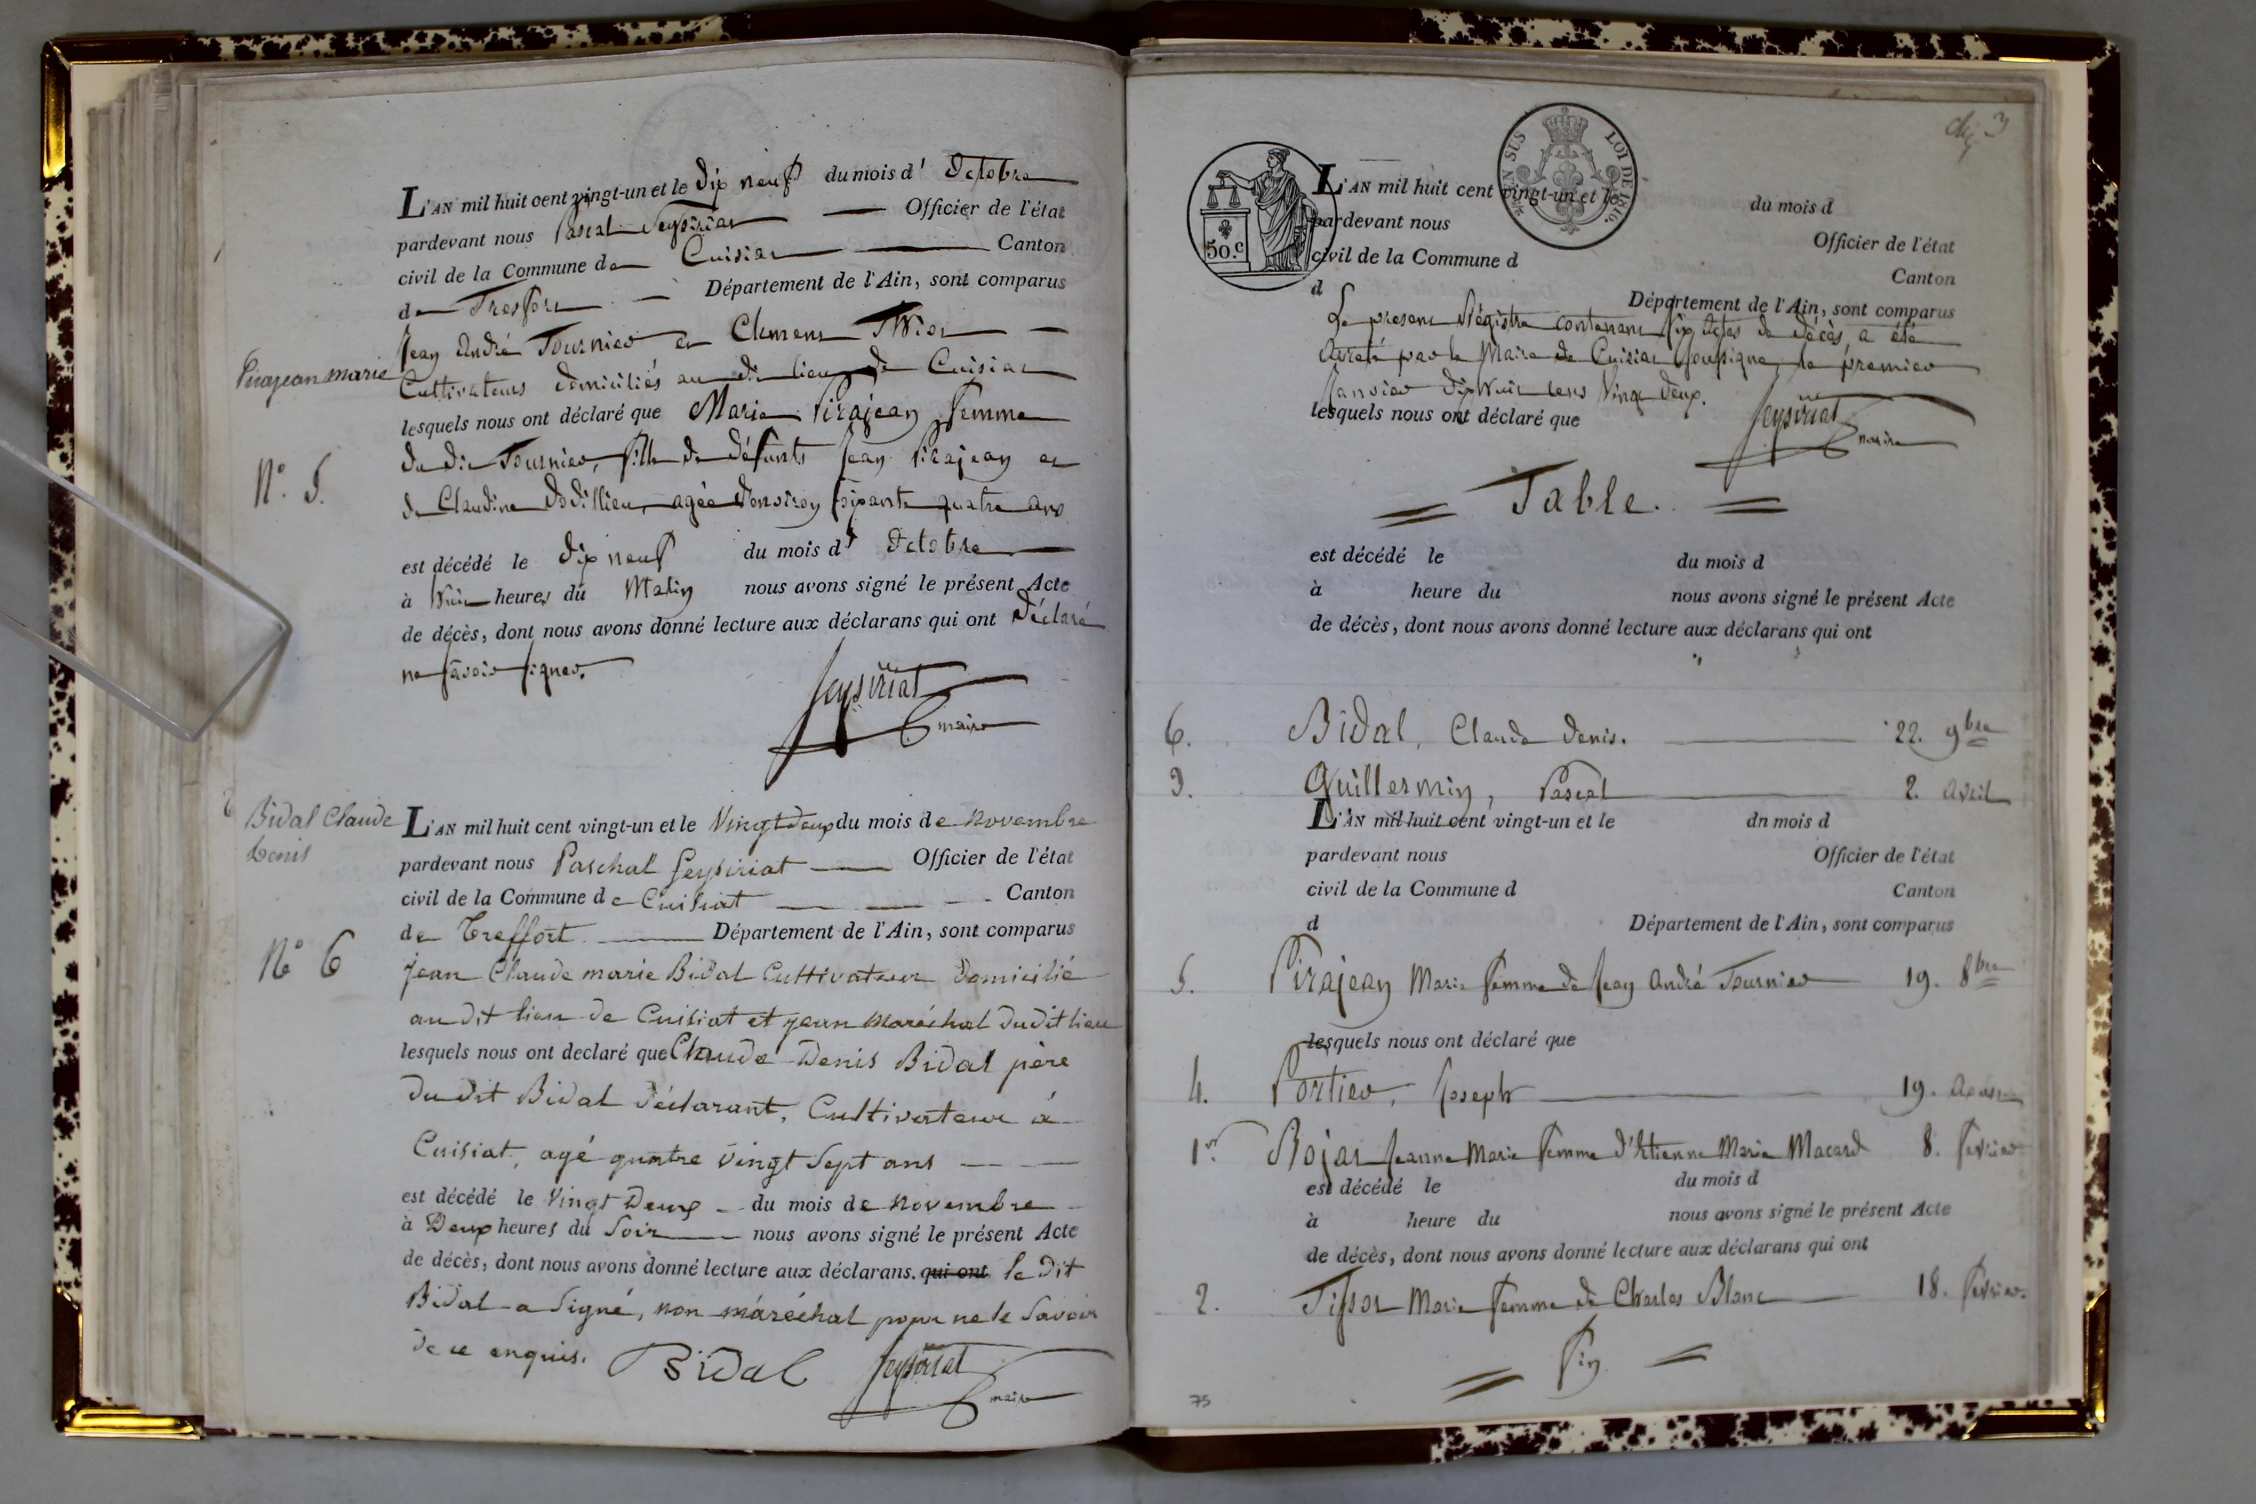 L'AN mil huit cent vingt-un et le dix neuf du mois d' Octobre
pardevant nous Pascal Seysiriat Officier de l'état
civil de la Commune de Cuisiat Canton
de Treffort Département de l'Ain, sont comparus
Jean André Tournier et Clement
Cultivateurs domiciliés au dit lieu de Cuisiat
Pirajean marie
lesquels nous ont déclaré que Marie Pirajean femme
du dit Tournier, fille de défunts Jean Pirajean et
N° 5.
de Claudine agée d'environ soixante quatre ans
est décédé le dix neuf du mois d' Octobre
à huit heures du Matin nous avons signé le présent Acte
de décès, dont nous avons donné lecture aux déclarans qui ont déclaré
ne savoir signer.
Seysiriat
maire
Bidal Claude
Denis
L'AN mil huit cent vingt-un et le Vingt deux du mois de novembre
pardevant nous Paschal Seysiriat Officier de l'état
civil de la Commune de Cuisiat Canton
de Treffort Département de l'Ain, sont comparus
N° 6
jean Claude marie Bidal Cultivateur Domicilié
au dit lieu de Cuisiat et jean Maréchal Dudit lieu
lesquels nous ont declaré que Claude Denis Bidal père
Du dit Bidal Déclarant, Cultivateur à
Cuisiat, agé quatre Vingt Sept ans
est décédé le Vingt Deux du mois de Novembre
à Deux heures du Soir nous avons signé le présent Acte
de décès, dont nous avons donné lecture aux déclarans. qui ont le Dit
Bidal a Signé, non maréchal pour ne le Savoir
de ce enquis.
Bidal Seysiriat
maire
EN SUS LOI DE 1816.
50.c
L'AN mil huit cent vingt-un et le du mois d
pardevant nous Officier de l'état
civil de la Commune d Canton
d Département de l'Ain, sont comparus
Le present Régistre contenant six Actes de décès, a été
Arreté par le Maire de Cuisiat soussigné, le premier
Janvier dix huit cent vingt deux.
lesquels nous ont déclaré que
Seysiriat
maire
Table.
est décédé le du mois d
à heure du nous avons signé le présent Acte
de décès, dont nous avons donné lecture aux déclarans qui ont
6. Bidal, Claude Denis. 22. 9bre
3. Guillermin, Pascal 2. Avril
L'AN mil huit cent vingt-un et le dn mois d
pardevant nous Officier de l'état
civil de la Commune d Canton
d Département de l'Ain, sont comparus
5. Pirajean Marie femme de Jean André Tournier 19. 8bre
lesquels nous ont déclaré que
4. Portier, Joseph 19.
1er Rojat Jeanne Marie femme d'Etienne Marie Macard 8. fevrier
est décédé le du mois d
à heure du nous avons signé le présent Acte
de décès, dont nous avons donné lecture aux déclarans qui ont
2. Tissot Marie femme de Charles Blanc 18. fevrier.
Fin
75